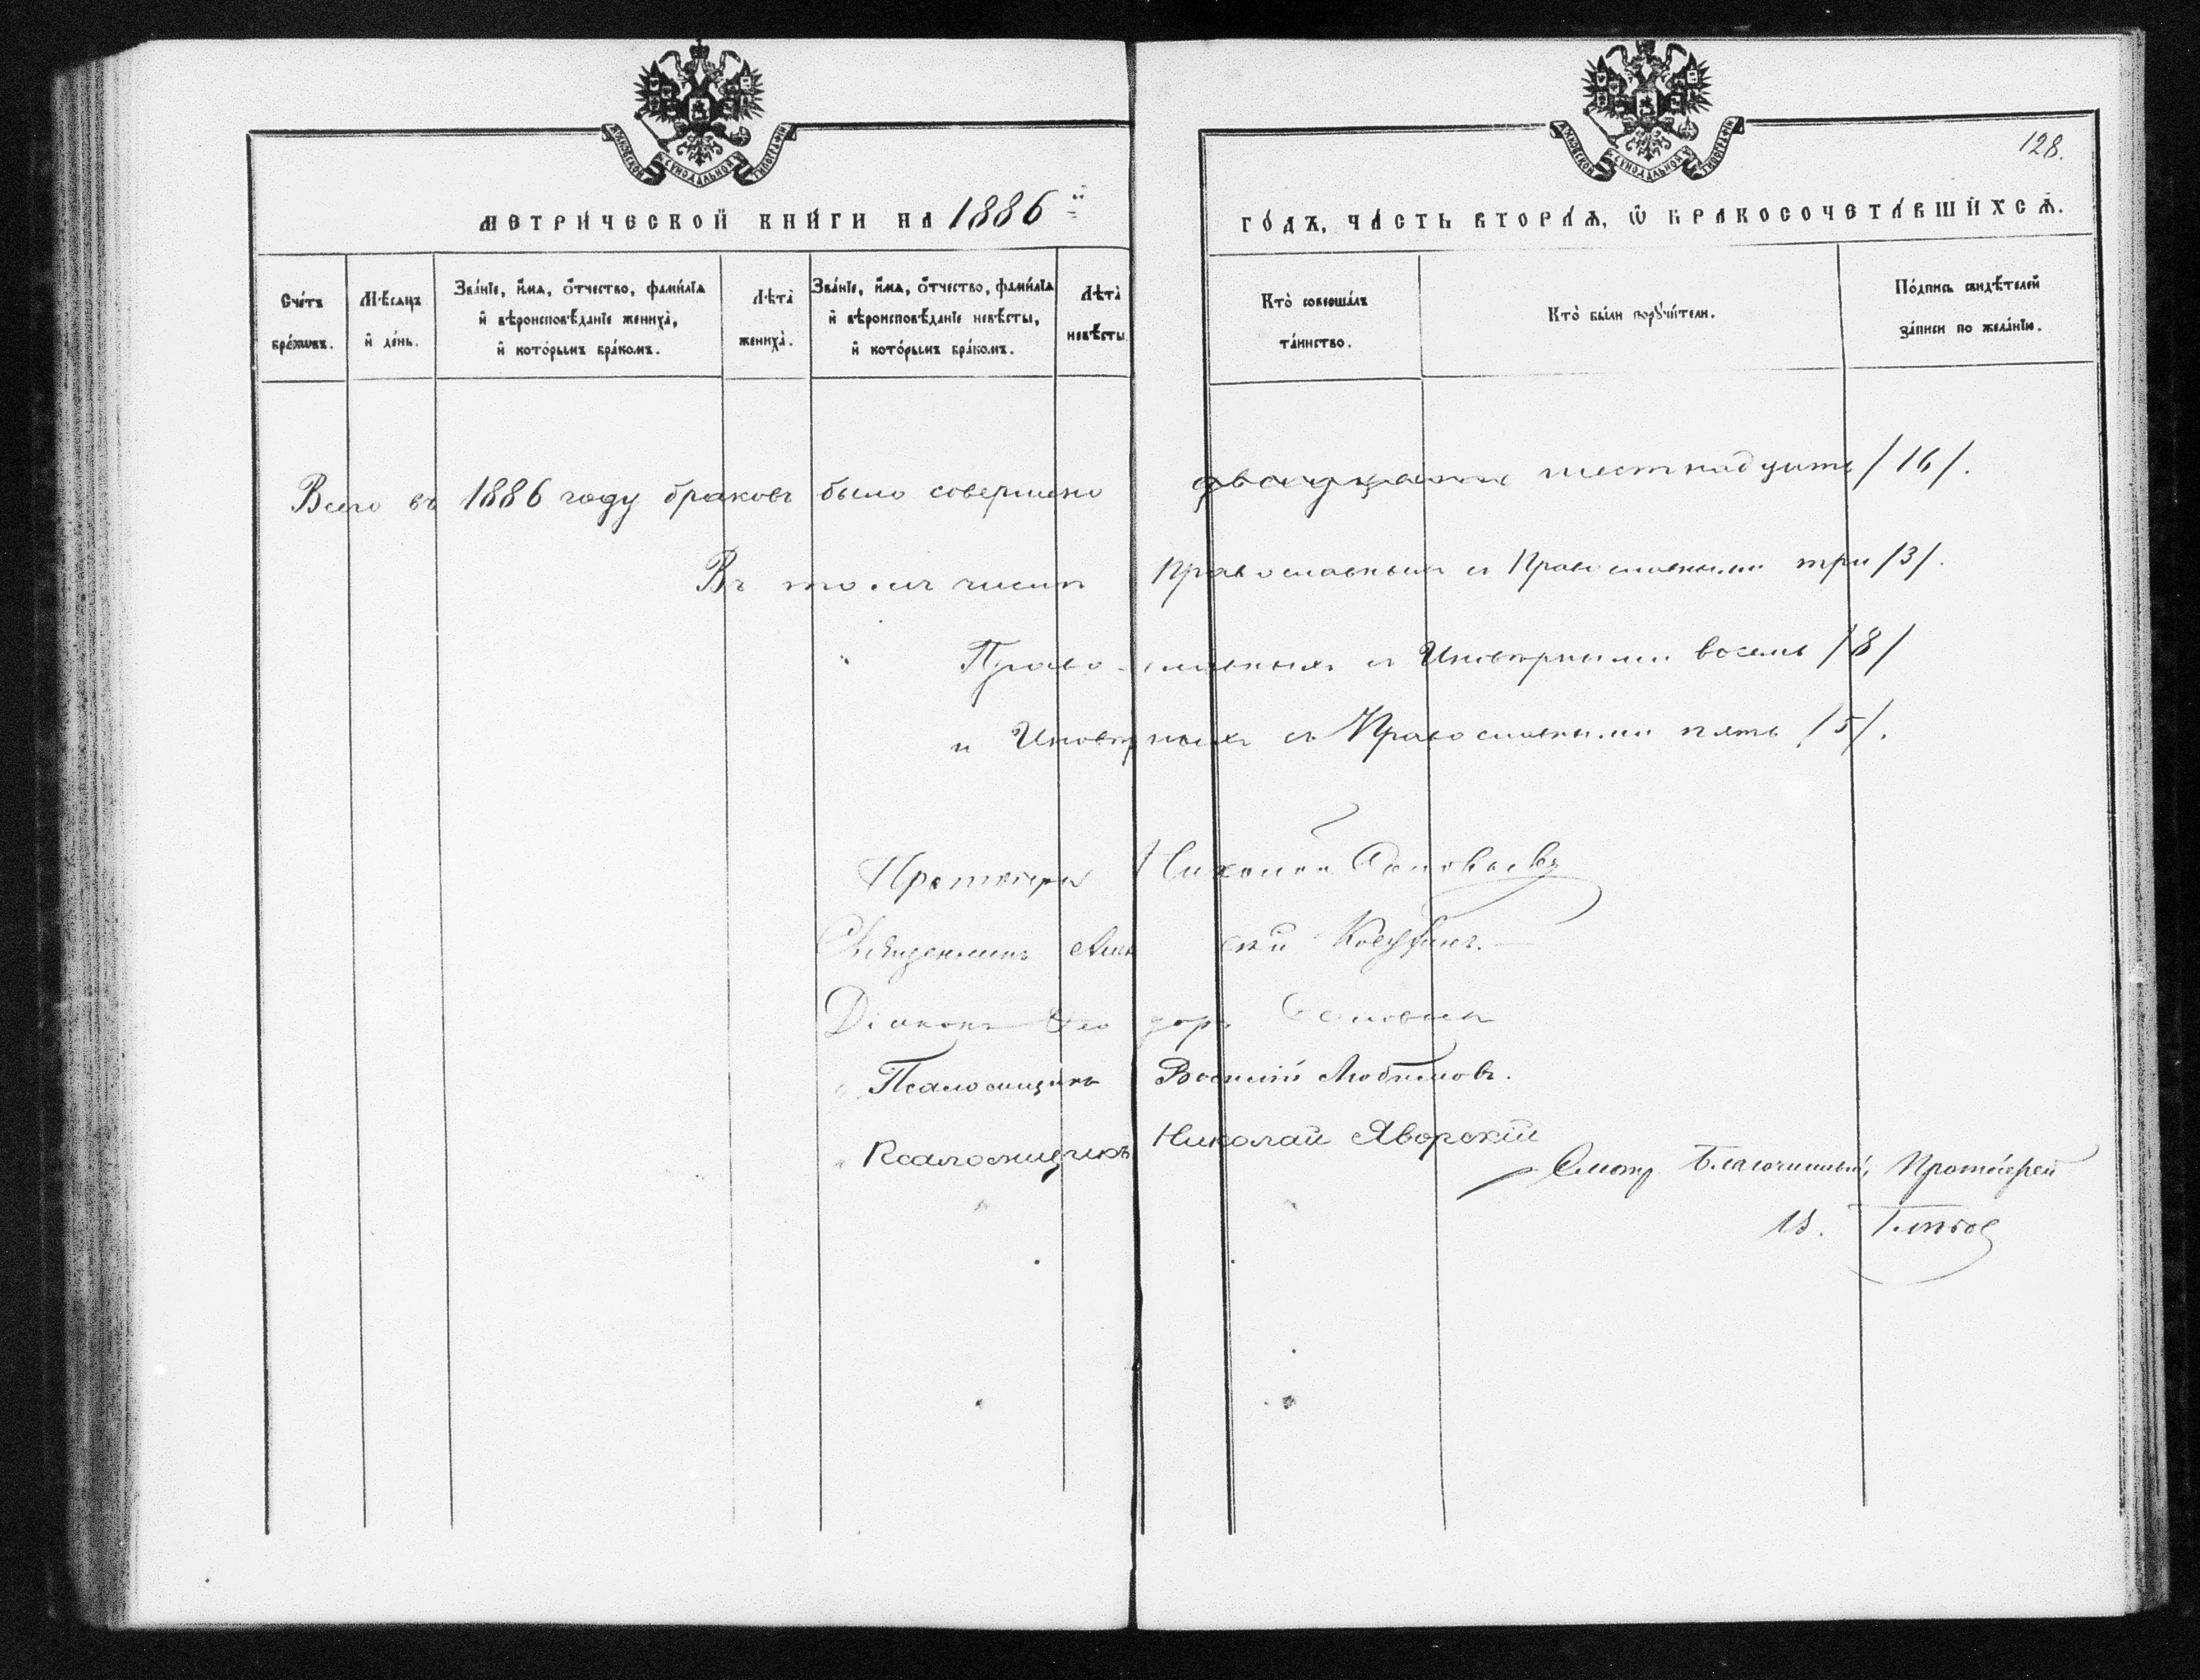 МОСКОВСКОЙ СѴНОДАЛЬНОЙ ТИПОГРАФІИ
МОСКОВСКОЙ СѴНОДАЛЬНОЙ ТИПОГРАФІИ
128.
МЕТРИ́ЧЕСКОЙ КНИ́ГИ НА 1886 й
ГО́ДЪ, ЧА́СТЬ ВТОРА́Ѧ, Ѿ БРАКОСОЧЕТА́ВШИХСѦ.
Сче́тъ бра́ковъ.
Мѣ́сѧцъ и҆ де́нь.
Зва́нїе, и҆́мѧ, ѻ҆́тчество, фами́лїѧ и҆ вѣроисповѣ́данїе жениха̀, и҆ кото́рымъ бра́комъ.
Лѣта̀ жениха̀.
Зва́нїе, и҆́мѧ, ѻ҆́тчество, фами́лїѧ и҆ вѣроисповѣ́данїе невѣ́сты, и҆ кото́рымъ бра́комъ.
Лѣта̀ невѣ́сты.
Кто̀ соверша́лъ та́инство.
Кто̀ бы́ли порꙋчи́тели.
По́дпись свидѣ́телей за́писи по жела́нїю.
Всего въ 1886 году браковъ было совершено двенадцать шестнадцать /16/.
Въ томъ числѣ Православныхъ съ Православными три /3/.
Православныхъ съ Иновѣрными восемь /8/
и Иновѣрныхъ съ Православными пять /5/.
Протоіерей Николай Соловьевъ
Священникъ Алексѣй
Діаконъ Ѳеодоръ
„ Псаломщикъ Василій Любимовъ.
„ Псаломщикъ Николай Яворскій
Смотр. Благочинный, Протоіерей